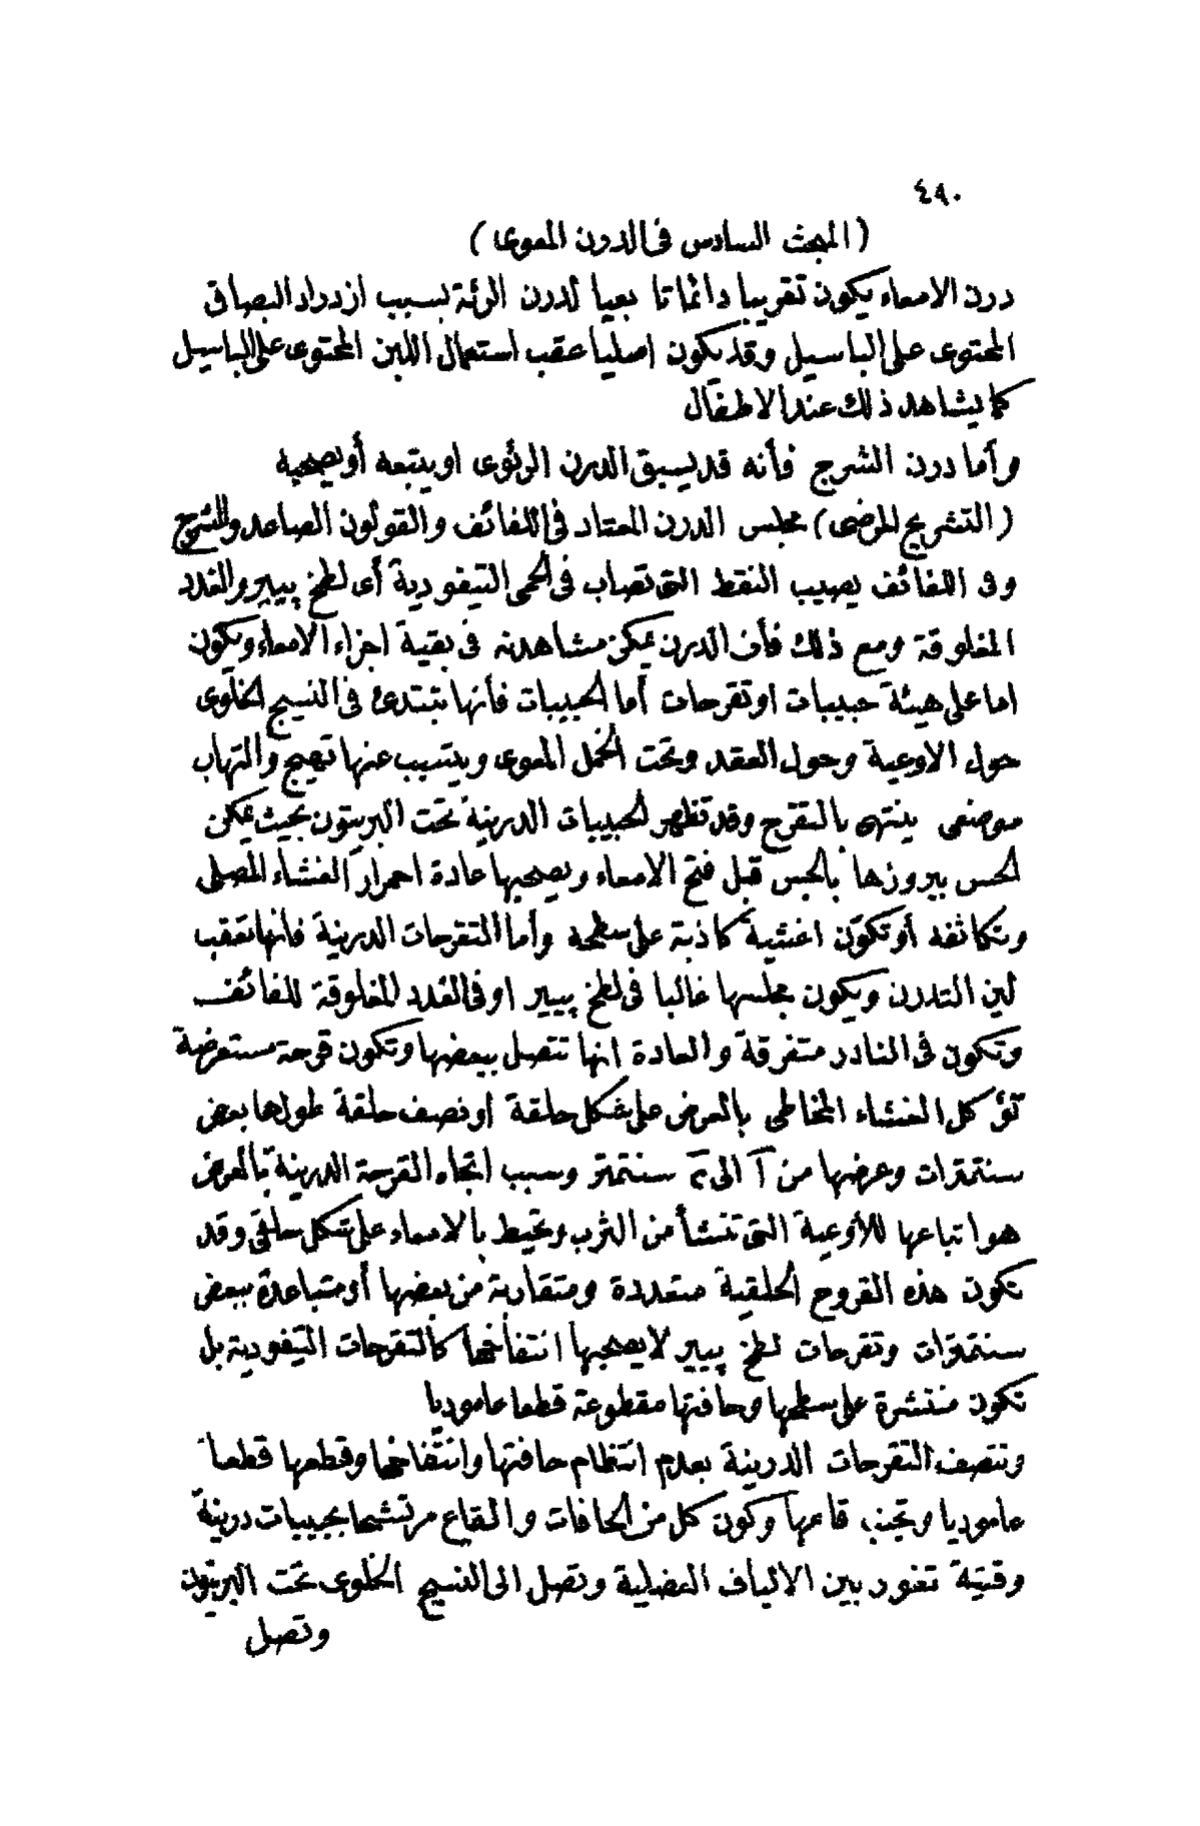 ٤٩٠
(المبحث السادس فى الدرن المعوى)
درن الامعاء يكون تقريبا دائما تا بعيا لدرن الرئة بسبب ازدراد البصاق
المحتوى على الباسيل وقد يكون اصليا عقب استعمال اللبن المحتوى على الباسيل
كما يشاهد ذلك عند الاطفال
وأما درن الشرج فأنه قد يسبق الدرن الرئوى او يتبعه أو يصحبه
(التشريح المرضى) مجلس الدرن المعتاد فى اللفائف والقولون الصاعد والشرج
وفى اللفائف يصيب النقط التى تصاب فى الحمى التيفودية أى لطخ پيير والغدد
المغلوقة ومع ذلك فأن الدرن يمكن مشاهدته فى بقية اجزاء الامعاء ويكون
اما على هيئة حبيبات او تقرحات أما الحبيبات فأنها تبتدئ فى النسيج الخلوى
حول الاوعية وحول العقد وتحت الخمل المعوى ويتسبب عنها تهيج والتهاب
موضعى ينتهى بالتقرح وقد تظهر الحبيبات الدرنية تحت البريتون بحيث يمكن
الحس ببروزها بالجس قبل فتح الامعاء ويصحبها عادة احمرار الغشاء المصلى
وتكاثفه أو تكون اغشية كاذبة على سطحه وأما التقرحات الدرنية فانها تعقب
لين التدرن ويكون مجلسها غالبا فى لطخ پيير او فى الغدد المغلوقة للفائف
وتكون فى النادر متفرقة والعادة انها تتصل ببعضها وتكون قرحة مستعرضة
تؤكل الغشاء المخاطى بالعرض على شكل حلقة او نصف حلقة طولها بعض
سنتمترات وعرضها من ١ الى ٢ سنتمتر وسبب اتجاه القرحة الدرنية بالعرض
هو اتباعها للأوعية التى تنشأ من الثرب وتحيط بالامعاء على شكل حلقى وقد
تكون هذه القروح الحلقية متعددة ومتقاربة من بعضها أو متباعدة ببعض
سنتمترات وتقرحات لطخ پيير لا يصحبها انتفاخها كالتقرحات التيفودية بل
تكون منتشرة على سطحها وحافتها مقطوعة قطعا عاموديا
وتتصف التقرحات الدرينة بعدم انتظام حافتها وانتفاخها وقطعها قطعا
عاموديا وتجبن قاعها وكون كل من الحافات والقاع مرتشحا بحبيبات درنية
وقتية تغور بين الالياف العضلية وتصل الى النسيج الخلوى تحت البريتون
وتصل